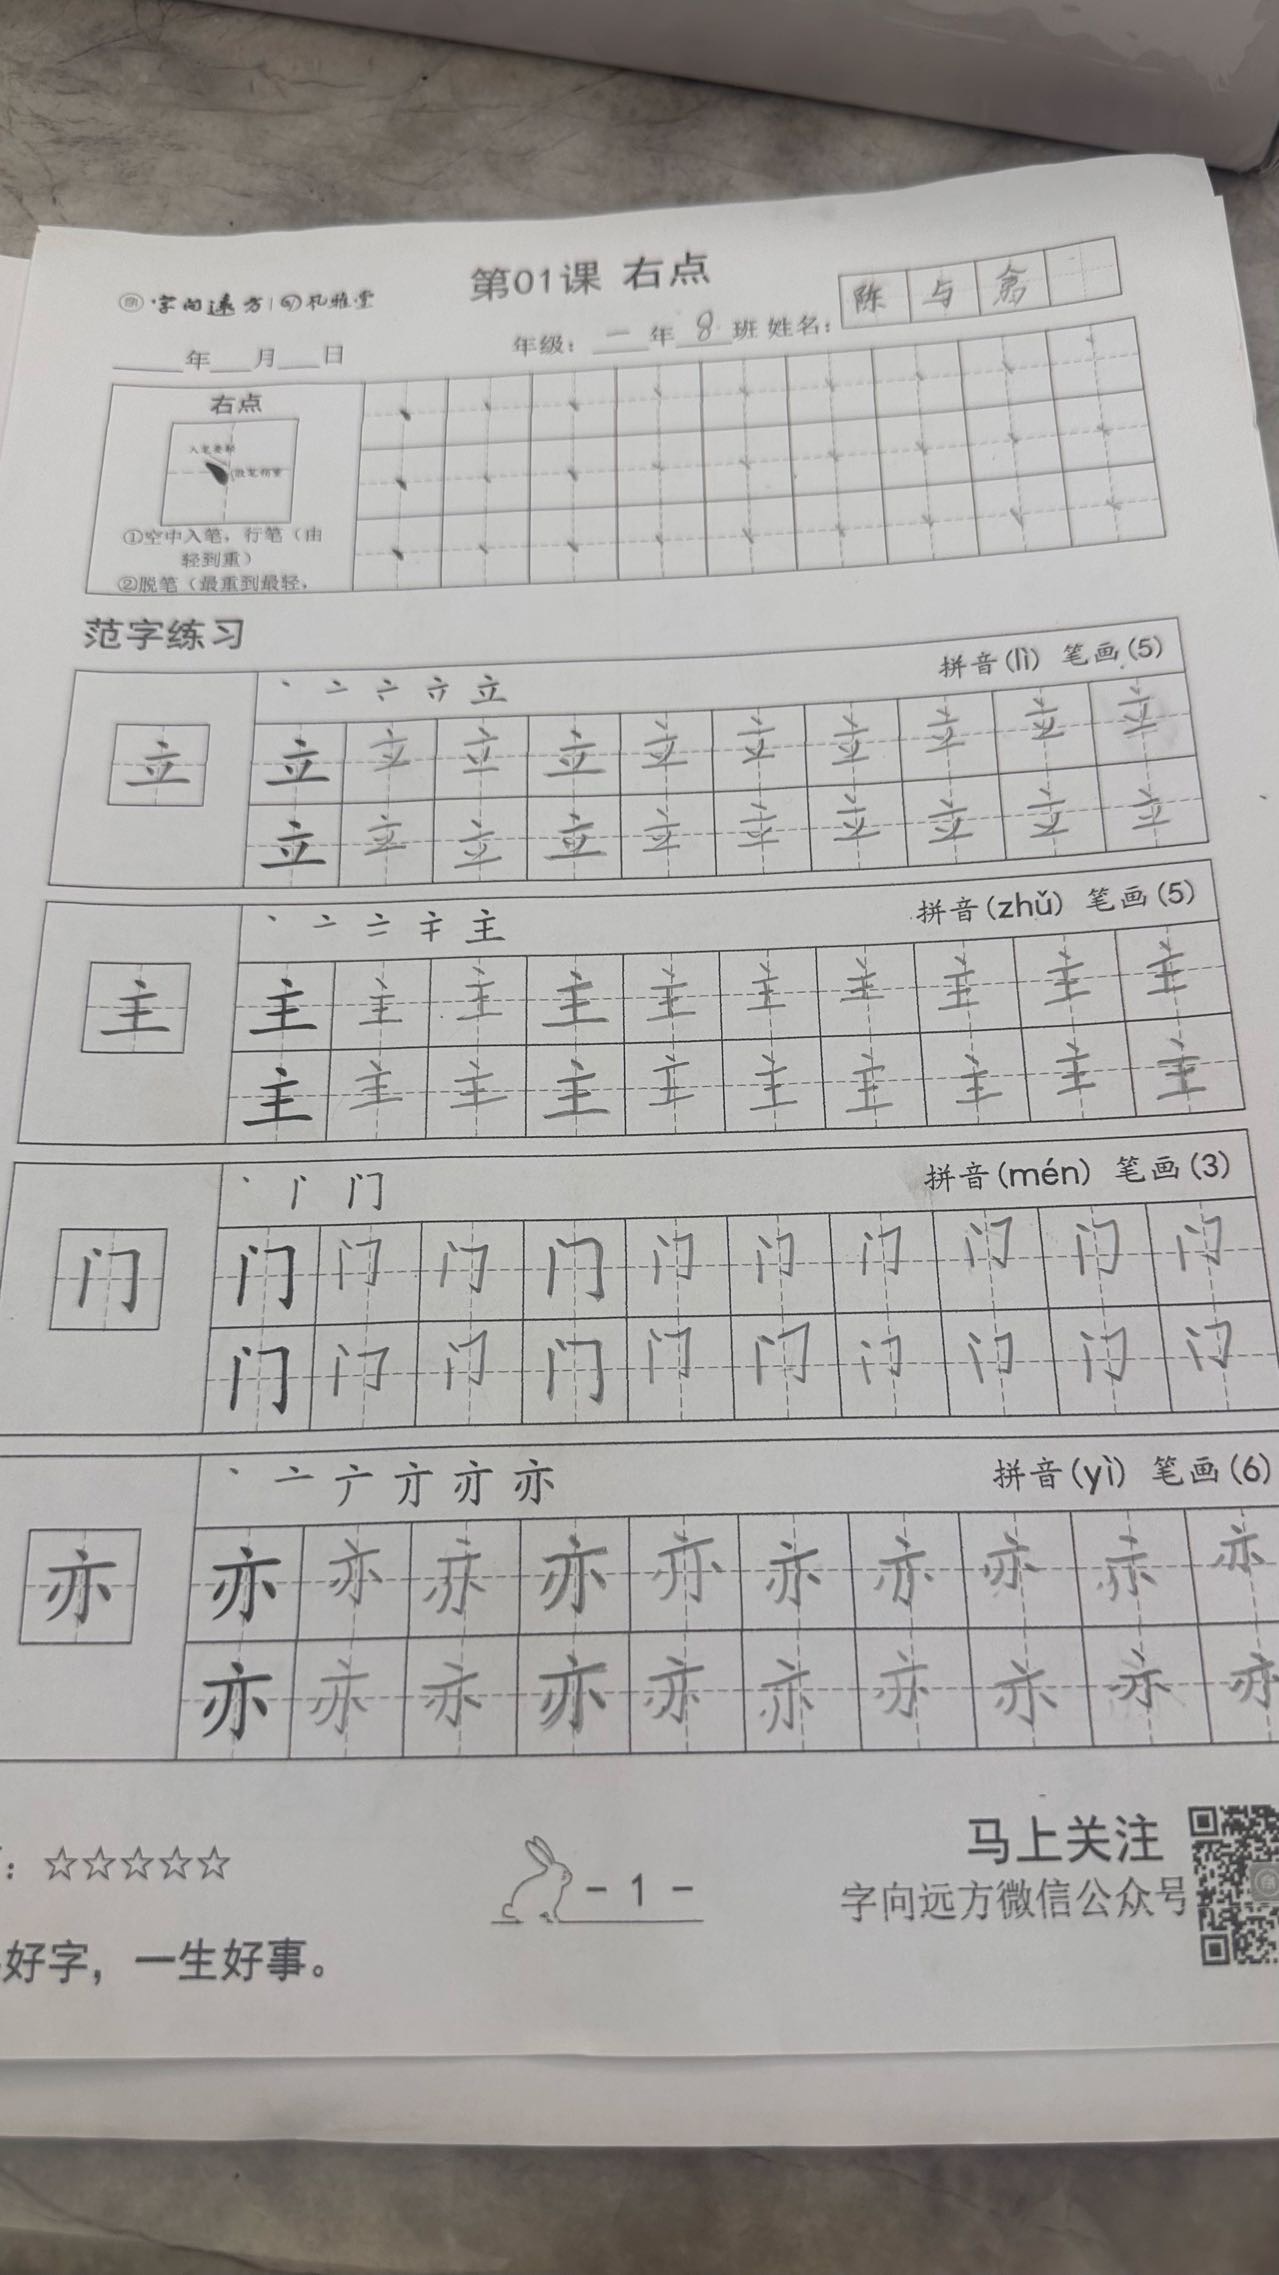 第01课 右点
字向远方
年级：一年8班 姓名：陈与
年 月 日
右点
①空中入笔，行笔（由
轻到重）
②脱笔（最重到最轻，
范字练习
丶 亠 立 拼音(lì) 笔画(5)
立 立 立 立 立 立 立 立 立 立 立
立 立 立 立 立 立 立 立 立 立
丶 亠 主 拼音(zhǔ) 笔画(5)
主 主 主 主 主 主 主 主 主 主 主
主 主 主 主 主 主 主 主 主 主
丶 门 拼音(mén) 笔画(3)
门 门 门 门 门 门 门 门 门 门 门
门 门 门 门 门 门 门 门 门 门
丶 亠 亦 拼音(yì) 笔画(6)
亦 亦 亦 亦 亦 亦 亦 亦 亦 亦 亦
亦 亦 亦 亦 亦 亦 亦 亦 亦 亦
：☆☆☆☆☆
- 1 -
马上关注
字向远方微信公众号
好字，一生好事。